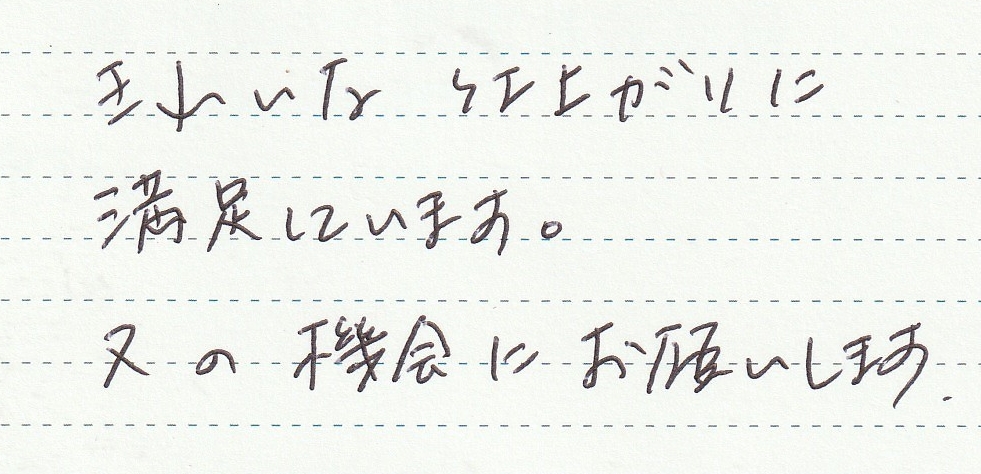 きれいな 仕上がりに
満足しています。
又の機会にお願いします.